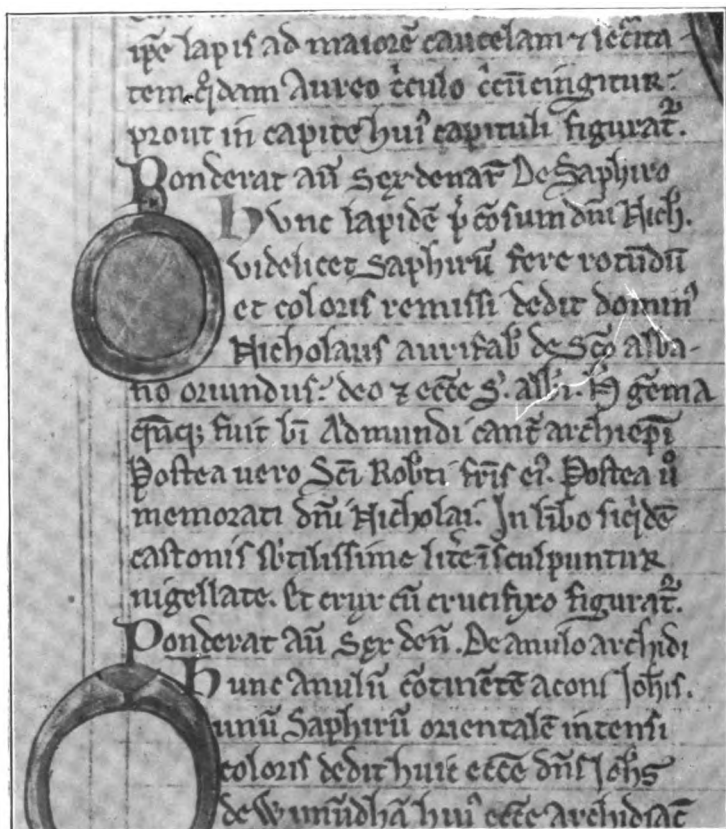 ipse lapis ad maiorē cautelam ⁊ secᵃita-
tem. qⁱdam aureo cⁱculo cⁱcūcingitur:
prout in capite huiꝰ capituli figuratᵘr.
Ponderat aū sex denar̄ De saphiro
Hunc lapidē p̄ dn̄i Nich.
videlicet saphirū fere rotūdū
et coloris remissi dedit dominꝰ
Nicholaus aurifab̄ de Sc̄o alba-
no oriundus: deo ⁊ ecc̄e s. alb̄i. H̄ gēma
qn̄q; fuit b̄i Admundi cant̄ archiep̄i
Postea uero Sc̄i Rob̄ti fr̄is eiꝰ. Postea ũ
memorati dn̄i Nicholai. In lībo siqⁱdē
castonis sb̄tilissime lit̄e īsculpuntur
nigellate. Et crux cū crucifixo figuratᵘr.
Ponderat aū sex den̄. De anulo archidi
Hunc anulū cōtinētē aconi Joh̄is.
unū saphirū orientalē intensi
coloris dedit huic ecc̄e dn̄s Joh̄s
de Wimūdhā huiꝰ ecc̄e archidiac̄